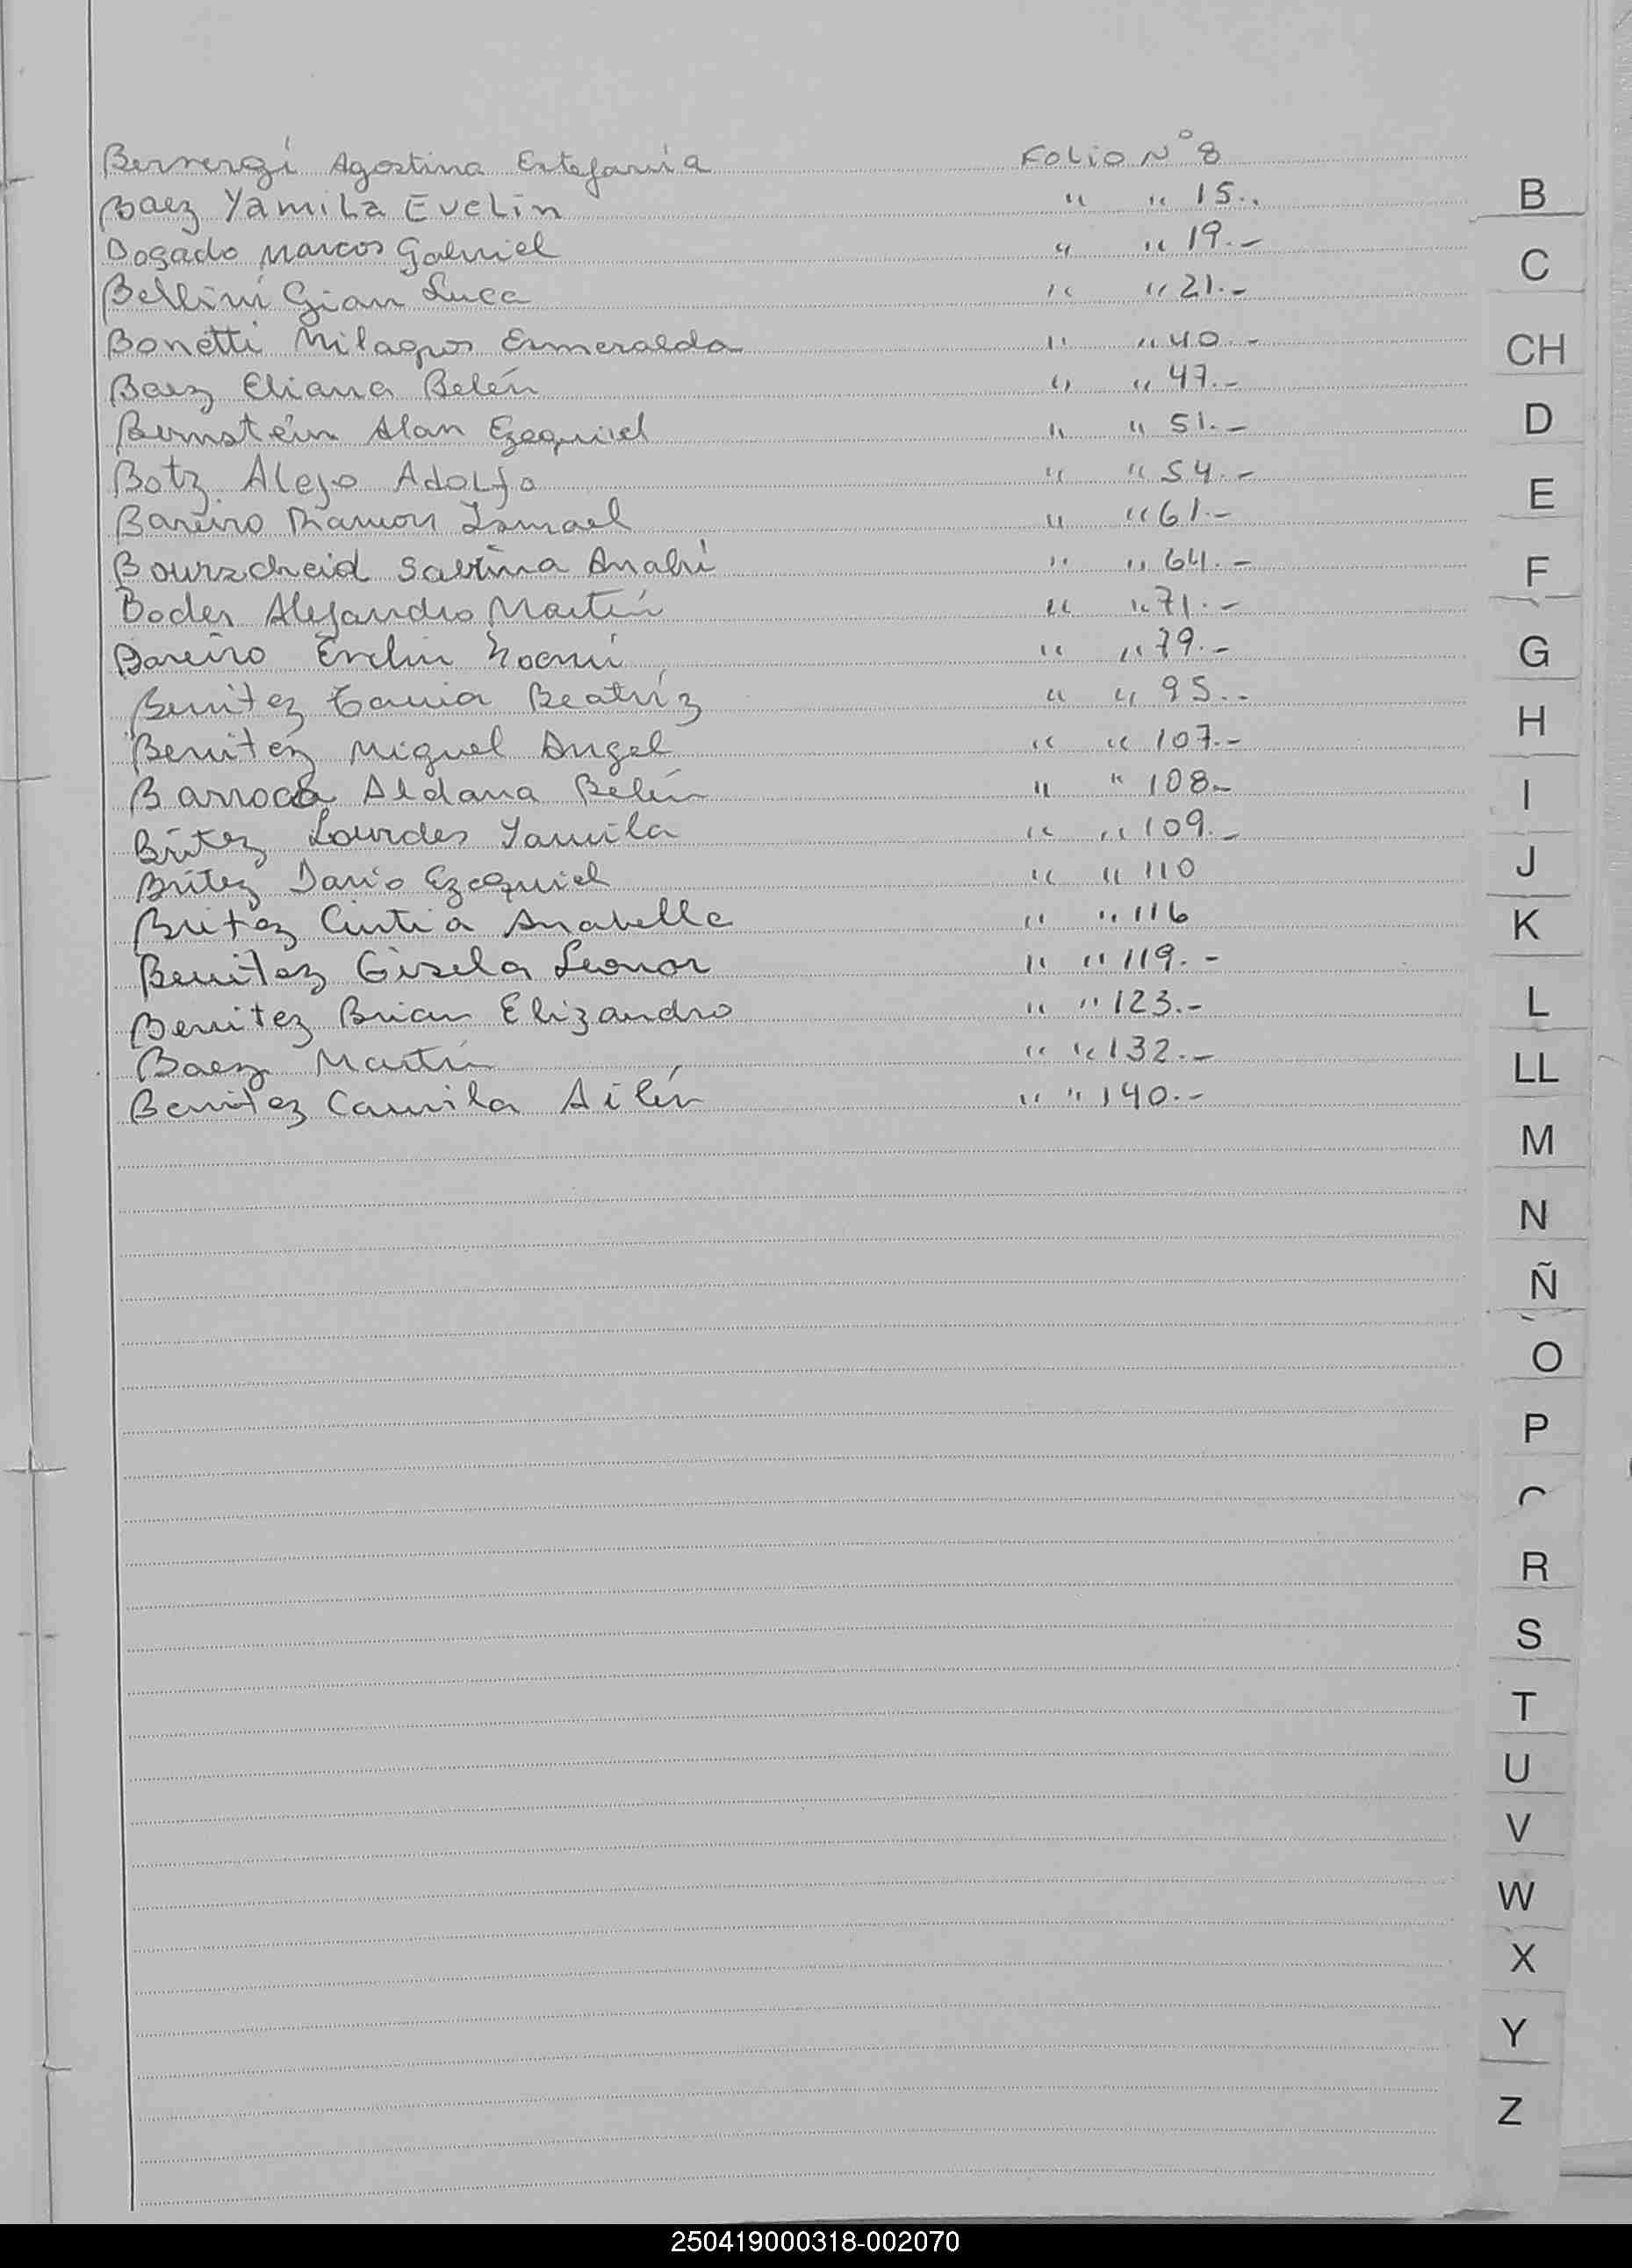 Agostina Estefanía Folio N° 8
Baez Yamila Evelin " " 15..
Bogado Marcos Gabriel " " 19.-
Bellini Gian Luca " " 21.-
Bonetti Milagros Esmeralda " " 40.-
Baez Eliana Belén " " 47.-
Bernstein Alan Ezequiel " " 51.-
Botz Alejo Adolfo " " 54.-
Bareiro Ramon Ismael " " 61.-
Bourscheid Sabrina Anahí " " 64.-
Boder Alejandro Martín " " 71.-
Bareiro Evelin Noemí " " 79.-
Benitez Tania Beatríz " " 95..
Benitez Miguel Angel " " 107.-
Barroca Aldana Belén " " 108-
Britez Lourdes Yamila " " 109.-
Britez Dario Ezequiel " " 110
Britez Cintia Anabella " " 116
Benitez Gisela Leonor " " 119.-
Benitez Brian Elizandro " " 123.-
Baez Martín " " 132.-
Benitez Camila Ailén " " 140.-
B
C
CH
D
E
F
G
H
I
J
K
L
LL
M
N
Ñ
O
P
R
S
T
U
V
W
X
Y
Z
250419000318-002070